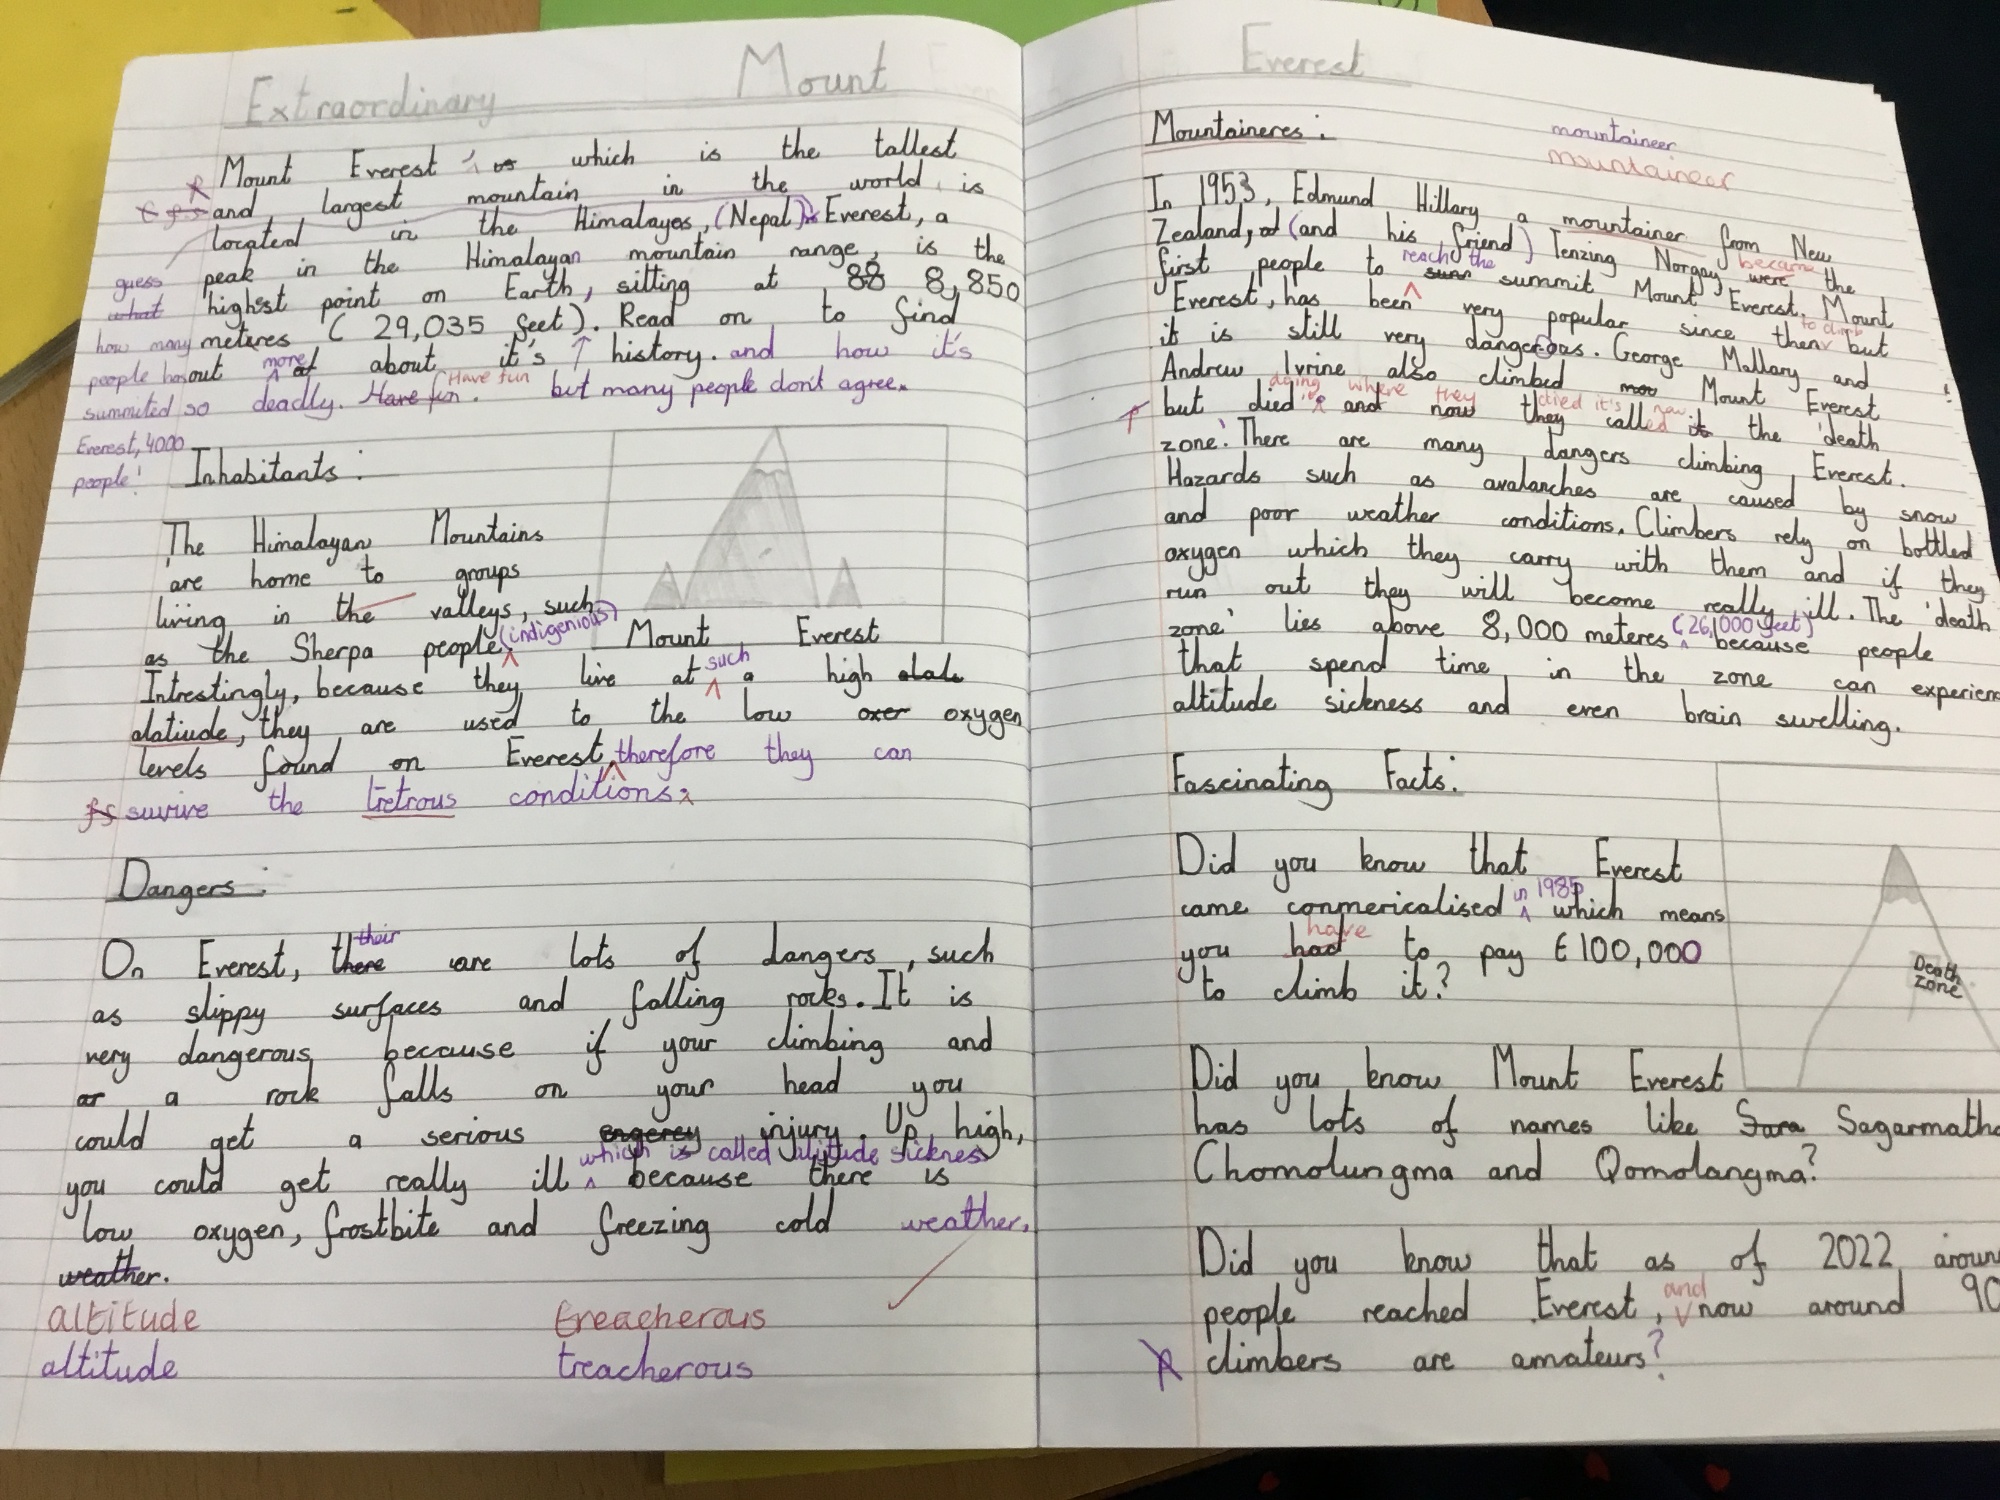 Extraordinary Mount Everest
Mount Everest, which is the tallest
and largest mountain in the world is
located in the Himalayas, (Nepal). Everest, a
peak in the Himalayan mountain range, is the
highest point on Earth, sitting at 88 8,850
meteres (29,035 feet). Read on to find
out more at about it's history. and how it's
deadly. Have fun. Have fun but many people don't agree.
guess
what
how many
people has
summited so
Everest, 4000
people!
Inhabitants:
The Himalayan Mountains
are home to groups
living in the valleys, such
as the Sherpa people (indigenious)
Mount Everest
Intrestingly, because they live at such a high
alatiude, they are used to the low oxer oxygen
levels found on Everest, therefore they can
fs survive the tretrous conditions.
Dangers:
On Everest, there their are lots of dangers, such
as slippy surfaces and falling rocks. It is
very dangerous because if your climbing and
or a rock falls on your head you
could get a serious engerey injury. Up high,
you could get really ill which is called altitude sickness because there is
low oxygen, frostbite and freezing cold weather.
weather.
altitude treacherous
altitude treacherous
Mountaineres:
mountaineer
mountaineer
In 1953, Edmund Hillary a mountainer from New
Zealand, (and his friend) Tenzing Norgay were became the
first people to reach the summit Mount Everest. Mount
Everest, has been very popular since then to climb but
it is still very dangerous. George Mallary and
Andrew Ivrine also climbed Mount Everest
but died doing it and where now they they died it's called now it the 'death
zone'. There are many dangers climbing Everest.
Hazards such as avalanches are caused by snow
and poor weather conditions. Climbers rely on bottled
oxygen which they carry with them and if they
run out they will become really ill. The 'death
zone' lies above 8,000 meteres (26,000 feet) because people
that spend time in the zone can experienc
altitude sickness and even brain swelling.
Fascinating Facts:
Did you know that Everest
came conmericalised in 1985 which means
you had have to pay £100,000
to climb it?
Death
zone
Did you know Mount Everest
has lots of names like Sara Sagarmatha
Chomolungma and Qomolangma?
Did you know that as of 2022 aroun
people reached Everest, and now around 90
climbers are amateurs?